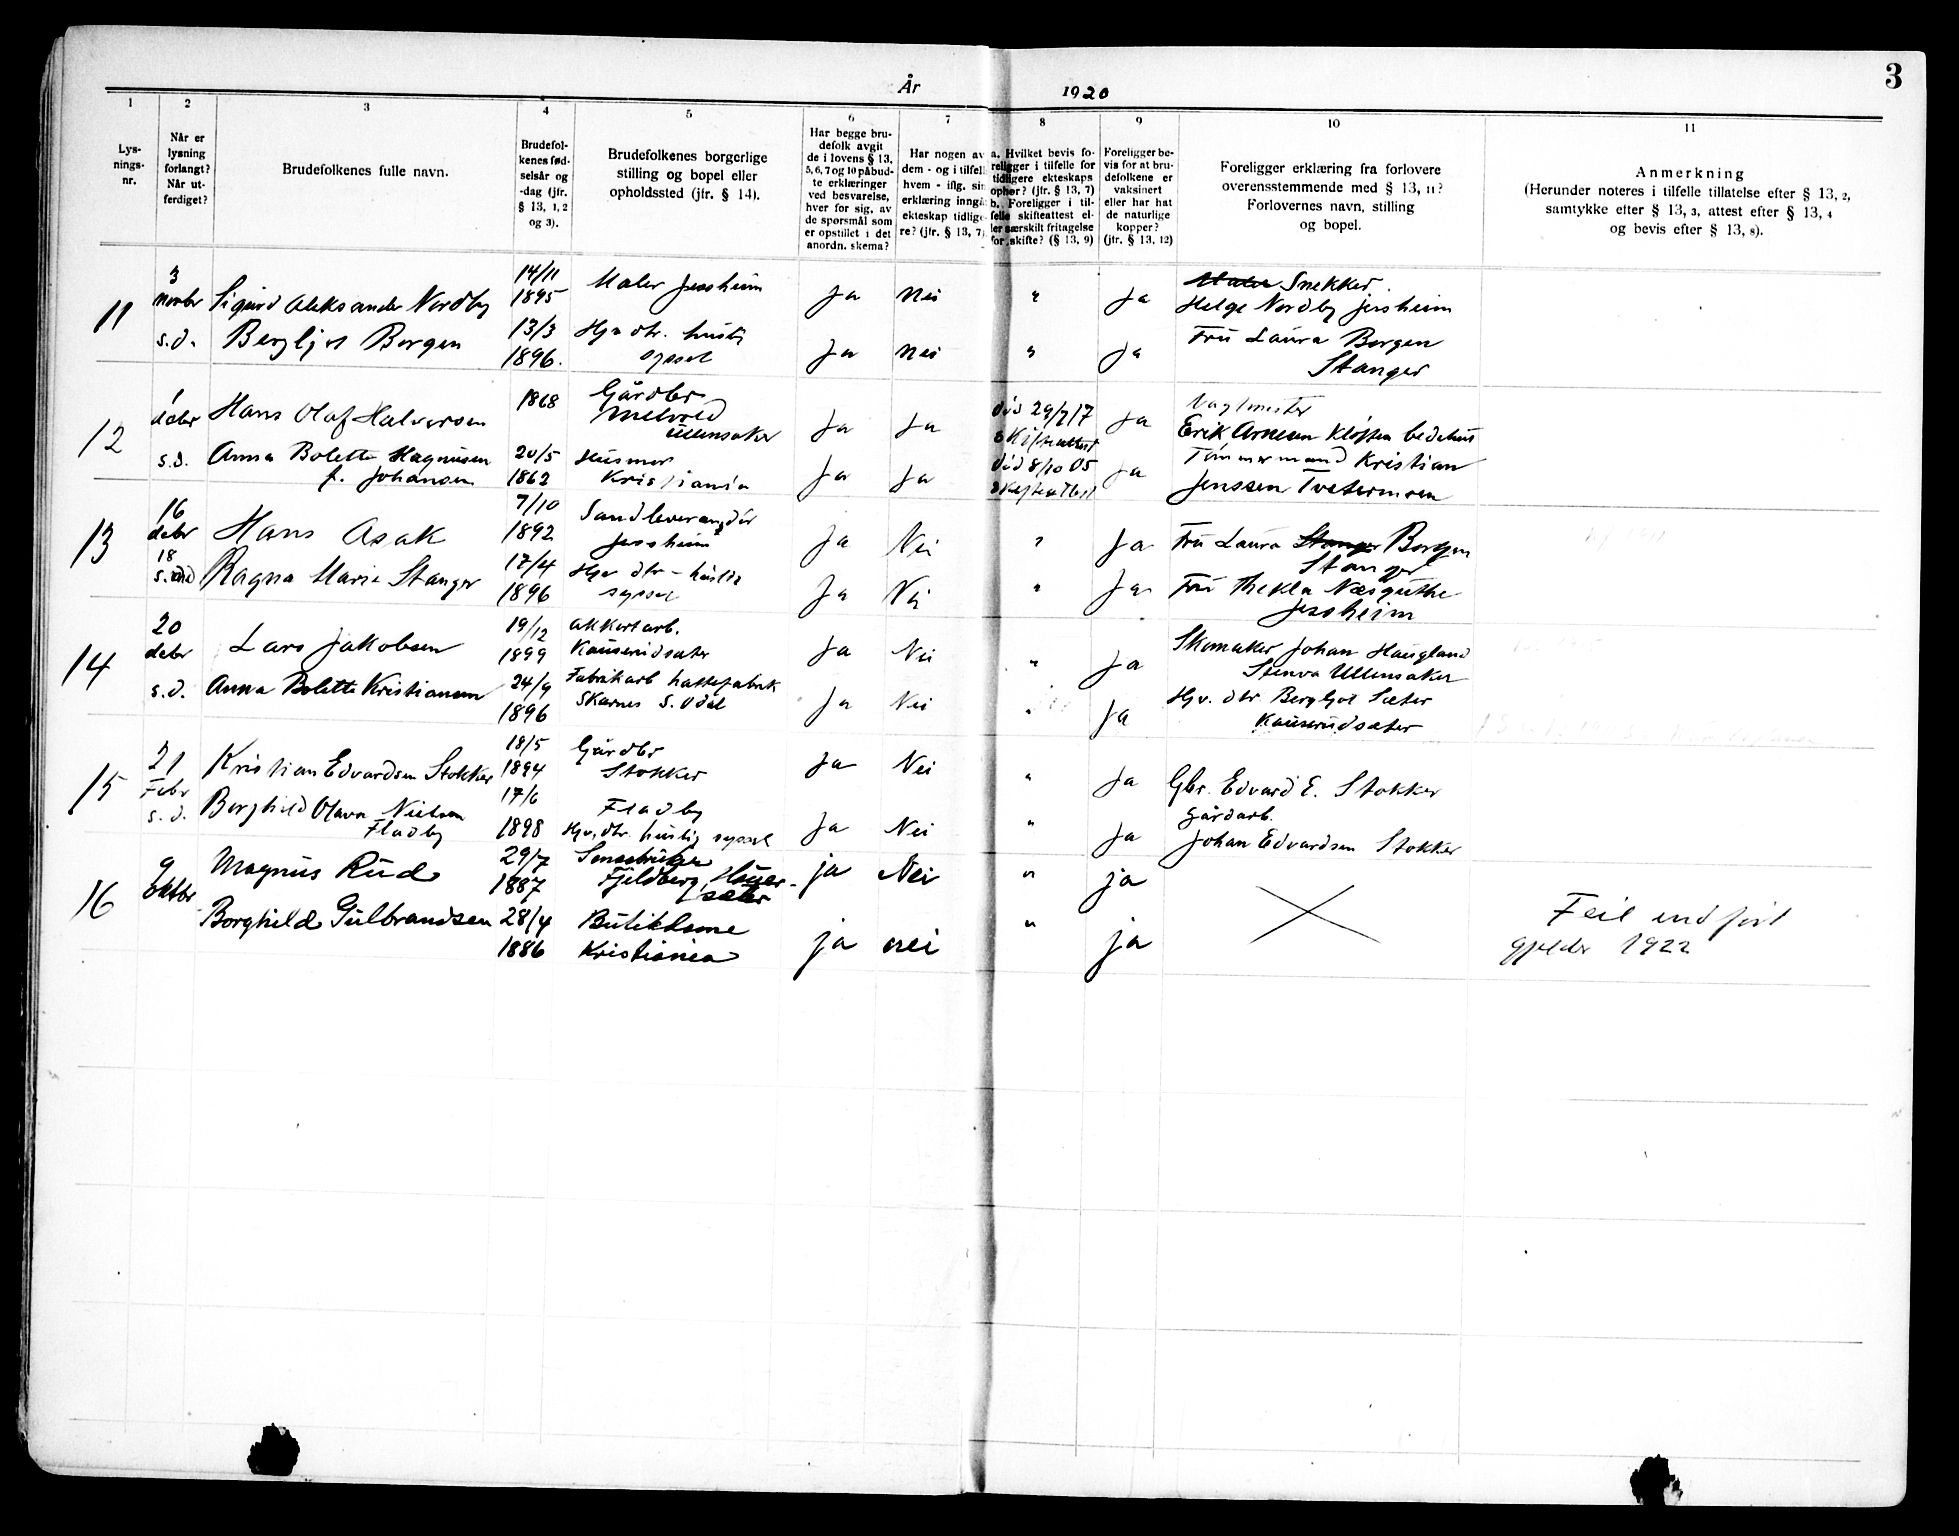 3
År 1920
1 2 3 4 5 6 7 8 9 10 11
Lysnings-nr.
Når er lysning forlangt? Når utferdiget?
Brudefolkenes fulle navn.
Brudefolkenes fødselsår og -dag (jfr. § 13, 1, 2 og 3).
Brudefolkenes borgerlige stilling og bopel eller opholdssted (jfr. § 14).
Har begge brudefolk avgit de i lovens § 13, 5, 6, 7 og 10 påbudte erklæringer ved besvarelse, hver for sig, av de spørsmål som er opstillet i det anordn. skema?
Har nogen av dem - og i tilfelle hvem - iflg. sin erklæring inngå ekteskap tidligere? (jfr. § 13, 7)
a. Hvilket bevis foreligger i tilfelle for tidligere ekteskaps ophør? (jfr. § 13, 7)
b. Foreligger i tilfelle skifteattest eller særskilt fritagelse for skifte? (§ 13, 9)
Foreligger bevis for at brudefolkene er vaksinert eller har hat de naturlige kopper? (jfr. § 13, 12)
Foreligger erklæring fra forlovere overensstemmende med § 13, 11? Forlovernes navn, stilling og bopel.
Anmerkning
(Herunder noteres i tilfelle tillatelse efter § 13, 2, samtykke efter § 13, 3, attest efter § 13, 4 og bevis efter § 13, 8).
11
3 novbr Sigurd Aleksander Nordby 14/11 1895 Maler Jessheim Ja Nei " Ja Maler Snekker.
Helge Nordby Jessheim
s.d. Bergljot Borgen 13/3 1896. Hjv dtr. husli syssel Ja Nei " Ja Fru Laura Borgen
Stanger
12
1 debr Hans Olaf Halvorsen 1868 Gårdbr Ullensaker Ja Ja død 29/7 17 skifteattest Ja Vagtmester
Erik Arnesen Kløften bedehus
s.d. Anna Bolette Magnusen f. Johansen 20/5 1862 Husmor Kristiania Ja Ja død 8/10 05 skifteattest Ja Tømmermand Kristian
Jenssen Tvetermoen
13
16 debr Hans Asak 7/10 1892 Sandleverandør Jessheim Ja Nei " Ja Fru Laura Stanger Borgen
Stanger
18 s.md Ragna Marie Stanger 17/4 1896 Hjv dtr - huslig syssel Ja Nei " Ja Fru Thekla Næsguthe
Jessheim
14
20 debr Lars Jakobsen 19/12 1899 Akkortarb. Kauserudsæter Ja Nei " Ja Skomaker Johan Haugland
Stenva Ullensaker
s.d. Anna Bolette Kristiansen 24/9 1896 Fabrikarb hattefabrik Skarnes S. Odal Ja Nei " Ja Hjv. dtr Bergljot Sæter
Kauserudsæter
15
21 Febr Kristian Edvardsen Stokker 18/5 1894 Gårdbr Stokker Ja Nei " Ja Gbr. Edvard E. Stokker
s.d. Borghild Olava Nielsen Fladby 17/6 1898 Fladby Hjv. dtr. huslig syssel Ja Nei " Ja gårdarb.
Johan Edvardsen Stokker
16
9 Oktbr Magnus Rud 29/7 1887 Fjeldberg, Hauersæter ja Nei " ja
Borghild Gulbrandsen 28/4 1886 Butikdame Kristiania ja nei " ja
Feil indført
gjelder 1922